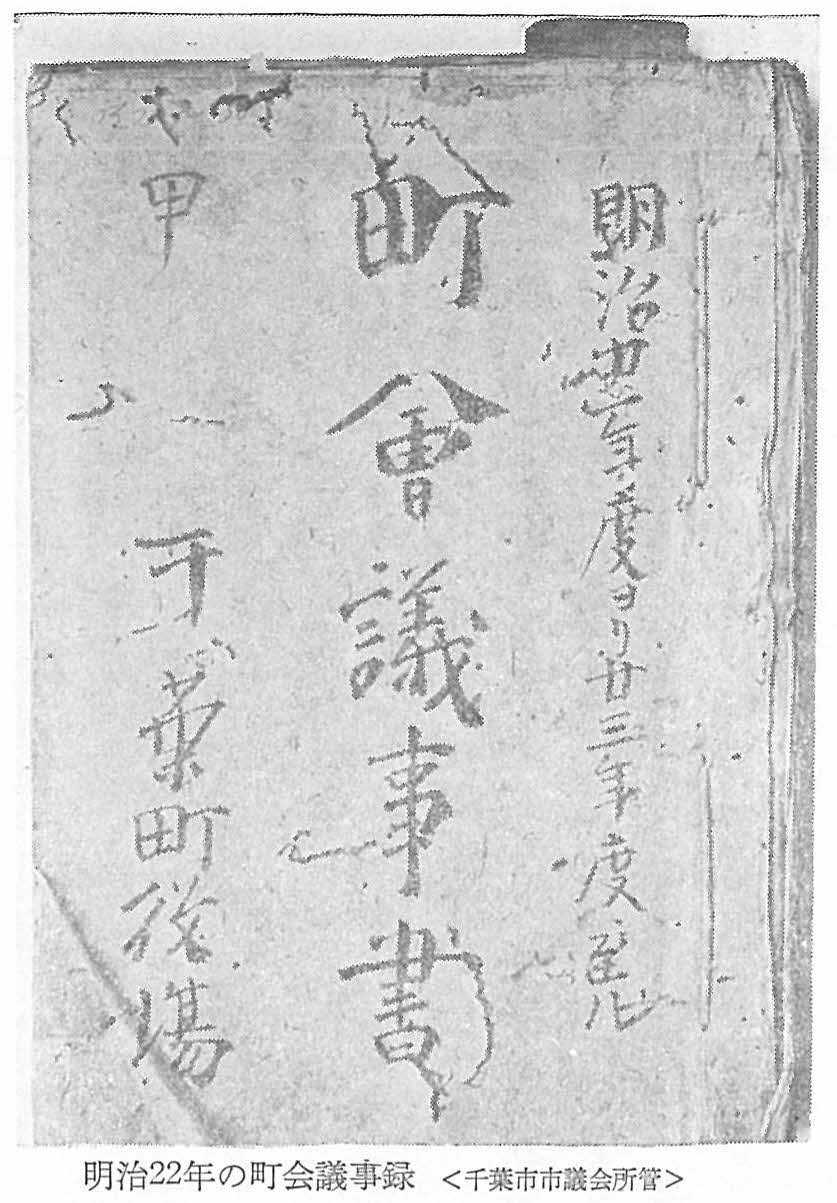 明治廿二年度ヨリ廿三年度ニ至ル
町會議事書
甲
千葉町役場
明治22年の町会議事録 <千葉市市議会所管>